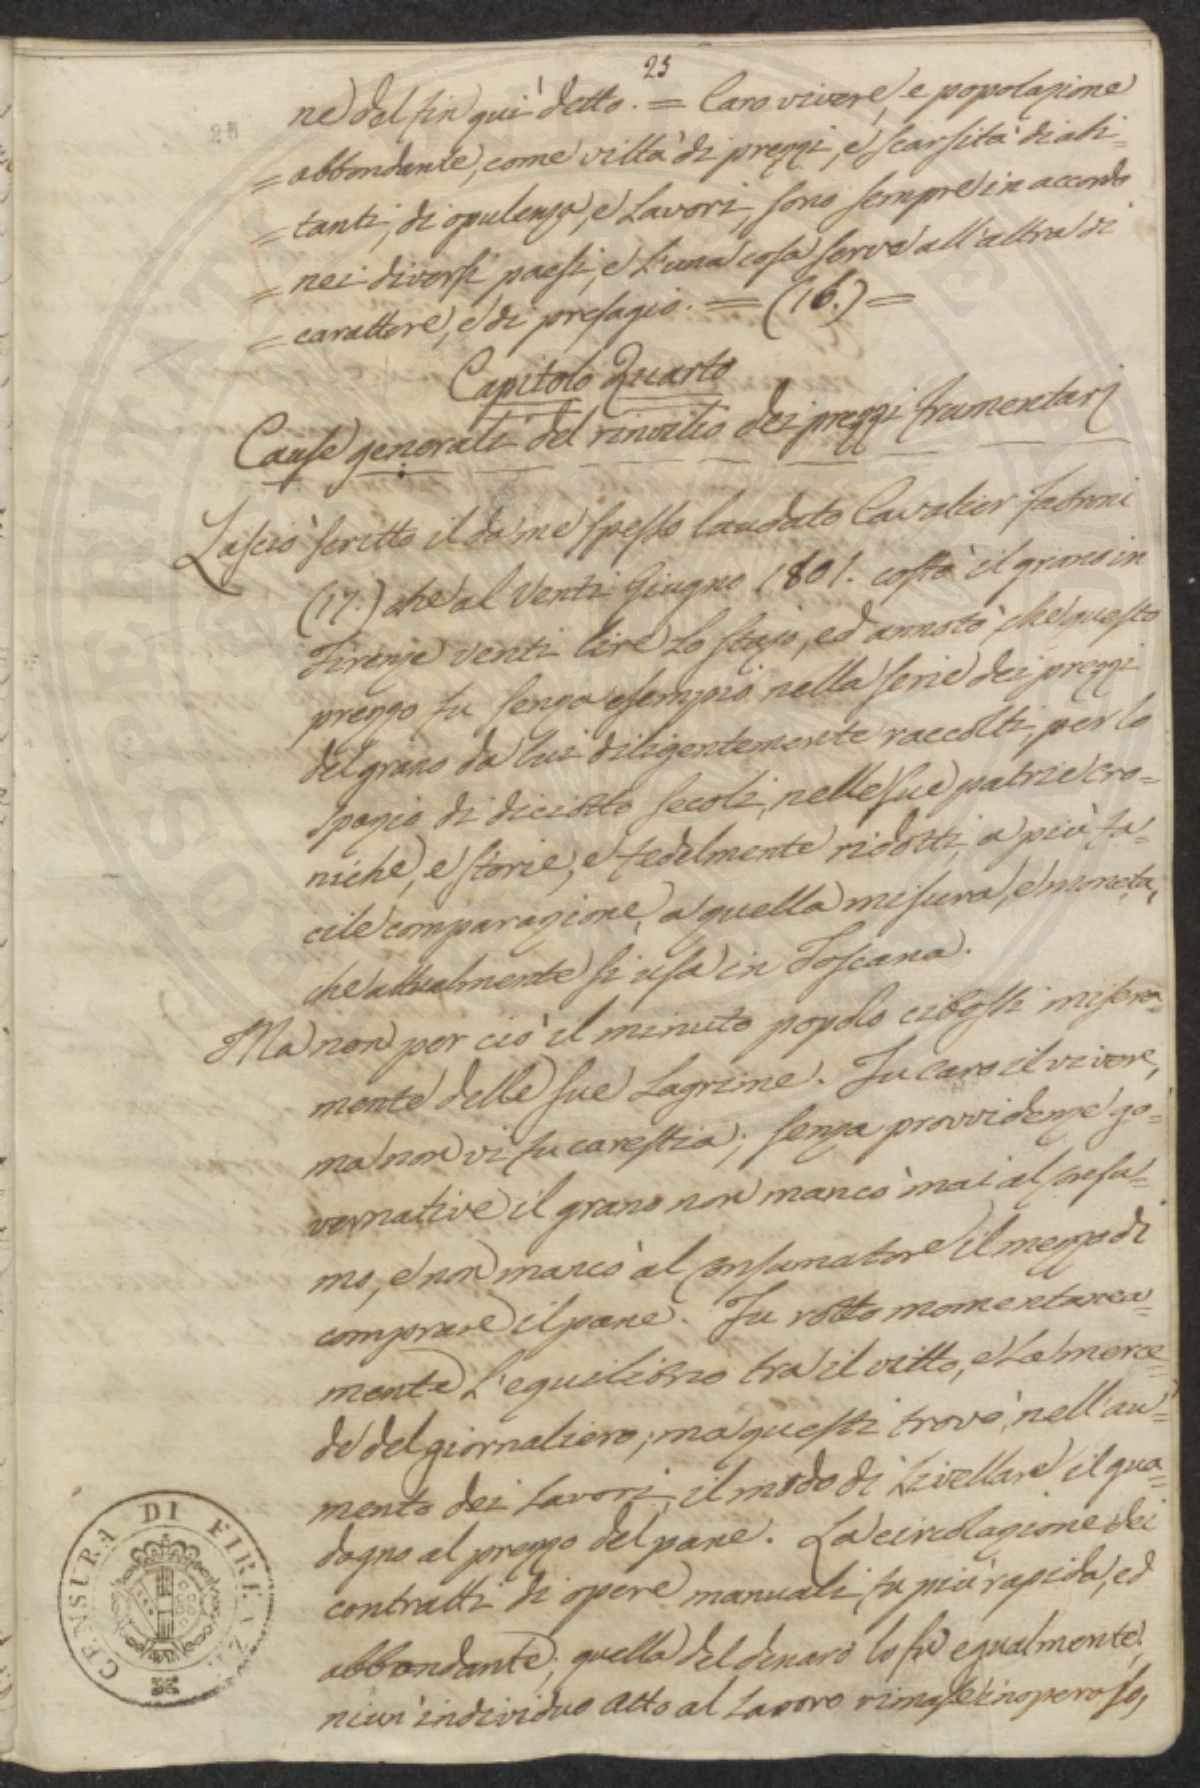 25
25
ne del fin quì detto. = Caro vivere, e popolazione
= abbondante, come viltà di prezzi, e scarsità di abi-
= tanti, di opulenza, e lavori, sono sempre in accordo
= nei diversi paesi, e l'una cosa serve all'altra di
= carattere, e di presagio. = (16.) =
Capitolo Quarto
Cause generali del rinvilio dei prezzi frumentarj
Lasciò scritto il da me spesso laudato Cavalier Fabroni
(17.) che al Venti Giugno 1801. costò il grano in
Firenze venti lire lo stajo, ed annotò che questo
prezzo fu senza esempio nella serie dei prezzi
del grano da lui diligentemente raccolti, per lo
spazio di diciotto secoli, nelle sue patrie cro=
niche, e storie, e fedelmente ridotti, a più fa=
cile comparazione, a quella misura, e moneta,
che attualmente si usa in Toscana.
Ma non per ciò il minuto popolo cibossi misera=
mente delle sue lagrime. Fu caro il vivere,
ma non vi fu carestia; senza provvidenze go=
vernative il grano non mancò mai al consu=
mo, e non mancò al consumatore il mezzo di
comprare il pane. Fu rotto momentanea=
mente l'equilibrio tra il vitto, e la merce=
de del giornaliero; ma questi trovò, nell'au=
mento dei lavori, il modo di livellare il gua=
dagno al prezzo del pane. La circolazione dei
contratti di opere manuali fu più rapida, ed
abbondante; quella del denaro lo fu egualmente;
niun individuo atto al lavoro rimase inoperoso,
CENSURA DI FIRENZE
PROSPERITATI